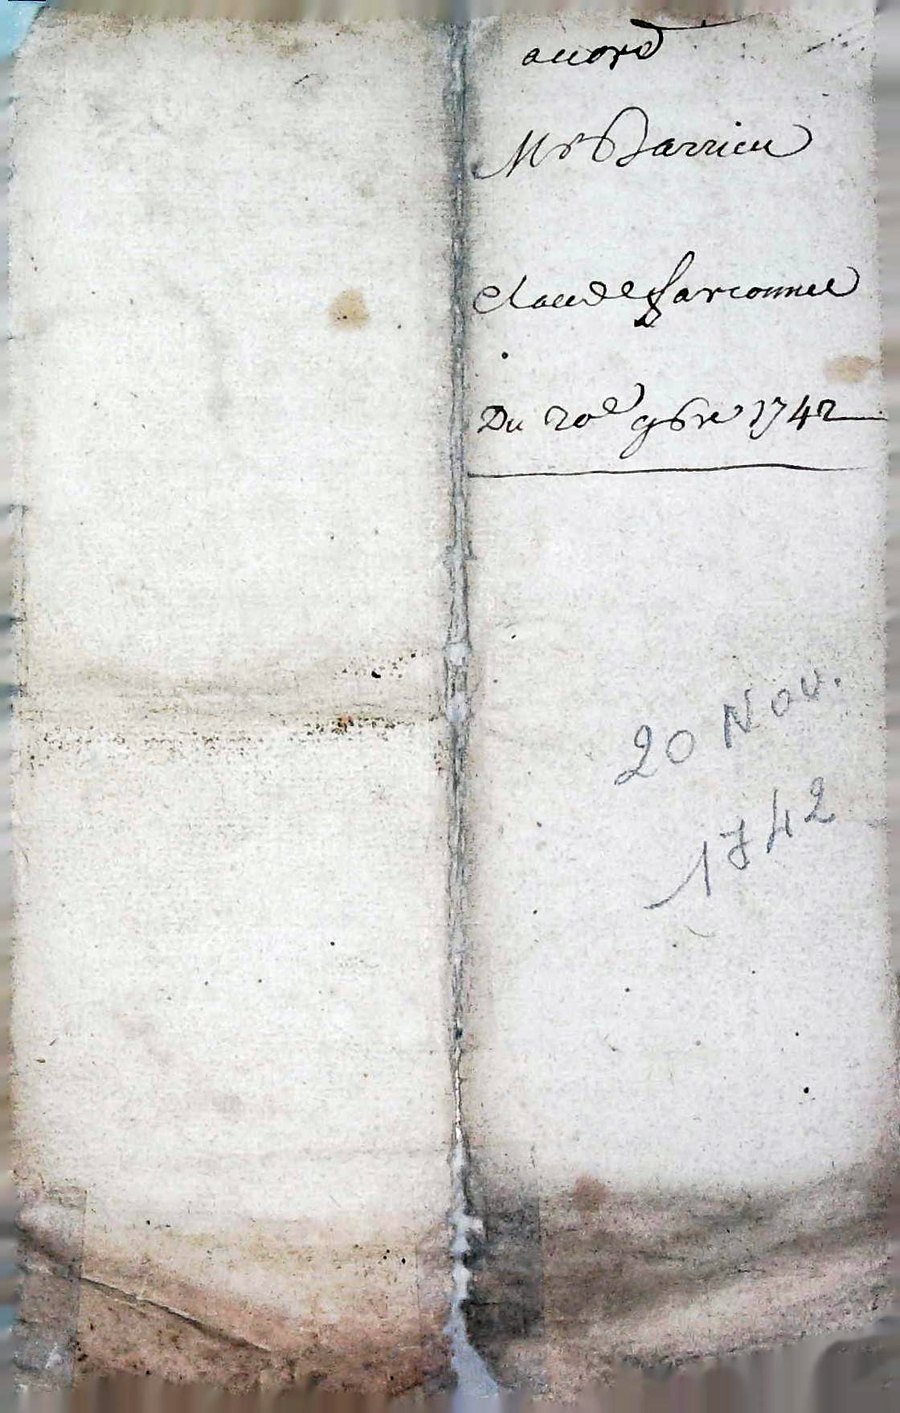 accord
Mr Barrieu
Claude farconnet
Du 20e 9bre 1742
20 Nov.
1742